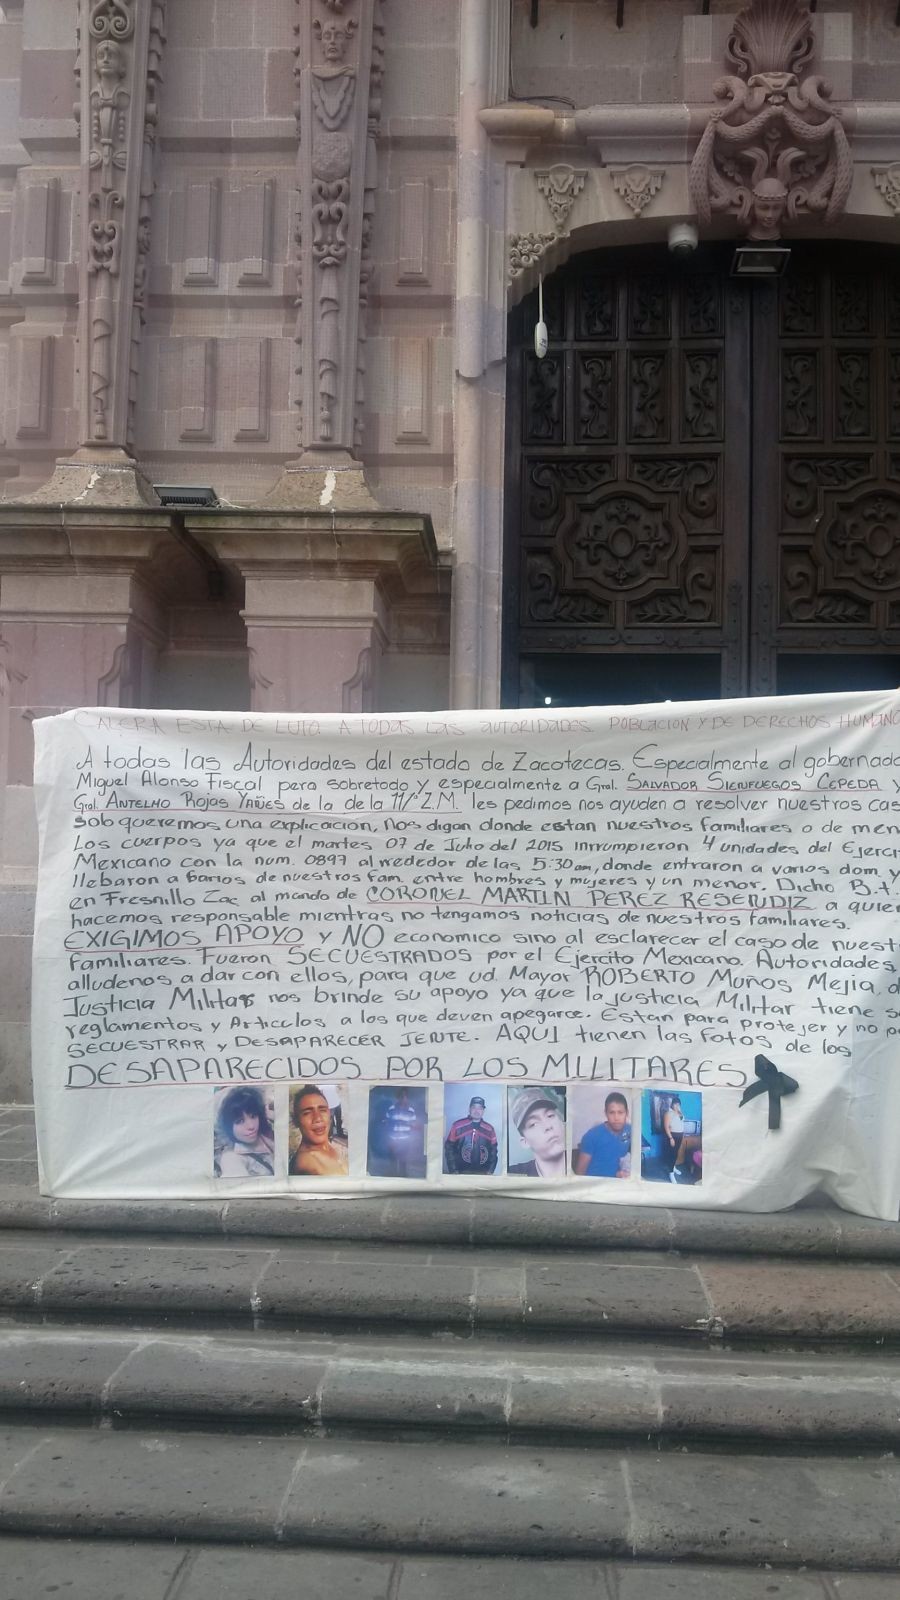 CALERA ESTA DE LUTO. A TODAS LAS AUTORIDADES. POBLACION Y DE DERECHOS HUMANO
A todas las Autoridades del estado de Zacatecas. Especialmente al gobernado
Miguel Alonso Fiscal pera sobretodo y especialmente a Gral. SALVADOR SIENFUEGOS CEPEDA y
Gral. ANTELMO ROJOS YAÑES de la de la 11/ª Z.M. les pedimos nos ayuden a resolver nuestros cas
sob queremos una explicacion, nos digan donde estan nuestros familiares o de men
Los cuerpos ya que el martes 07 de Julio del 2015 inrrumpieron 4 unidades del Ejerci
Mexicano con la num. 0897 al rrededor de las 5:30am, donde entraron a varios dom y
llebaron a barios de nuestros fam. entre hombres y mujeres y un menor. Dicho B.t.
en Fresnillo Zac al mando de CORONEL MARTIN PEREZ RESENDIZ a quien
hacemos responsable mientras no tengamos noticias de nuestros familiares.
EXIGIMOS APOYO y NO economico sino al esclarecer el caso de nuest
familiares. Fueron SECUESTRADOS por el Ejercito Mexicano. Autoridades
alludenos a dar con ellos, para que ud. Mayor ROBERTO Muños Mejia, d
Justicia Militar nos brinde su apoyo ya que la justicia Militar tiene s
reglamentos y Articulos a los que deven apegarce. Estan para protejer y no p
SECUESTRAR y DESAPARECER JENTE. AQUI tienen las fotos de los
DESAPARECIDOS POR LOS MILITARES